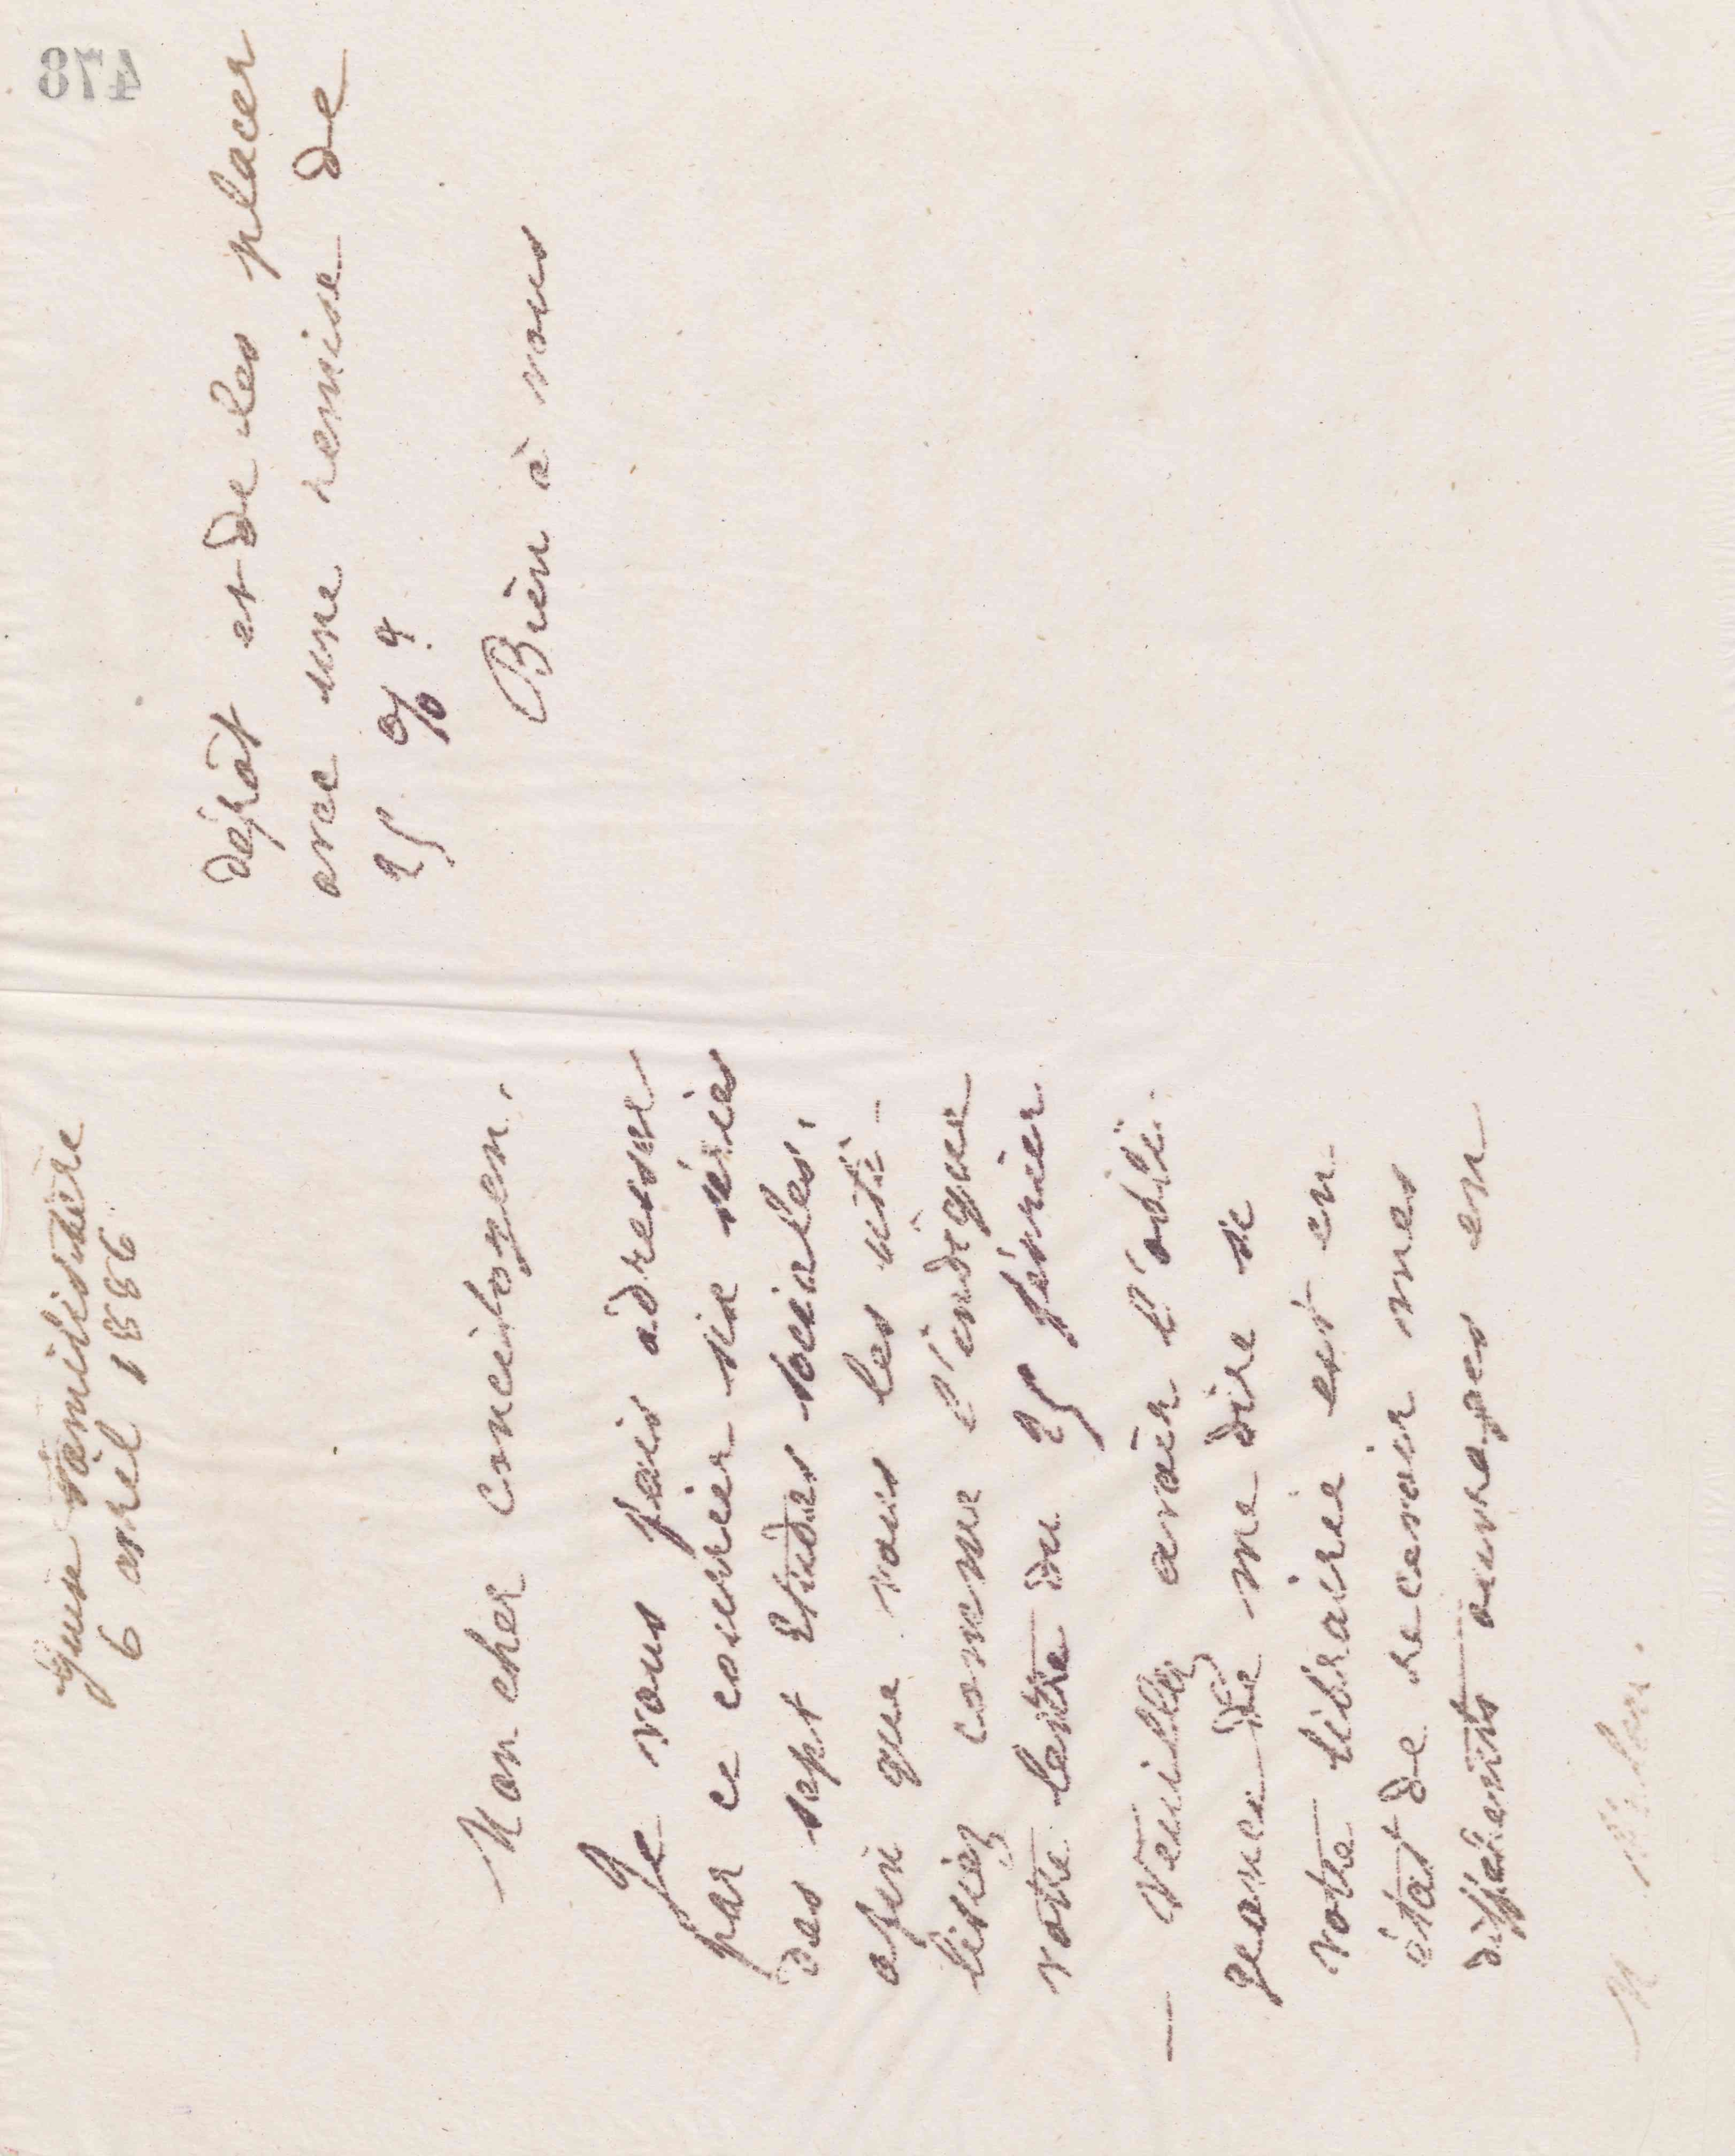 Guise Familistère
6 avril 1886
Mon cher concitoyen,
Je vous fais adresser
par ce courrier six séries
des sept Etudes sociales,
afin que vous les uti-
lisiez comme l'indique
votre lettre du 25 février
— Veuillez avoir l'obli-
geance de me dire si
votre librairie est en
état de recevoir mes
différents ouvrages en
M
dépôt et de les placer
avec une remise de
25 % ?
Bien à vous
478